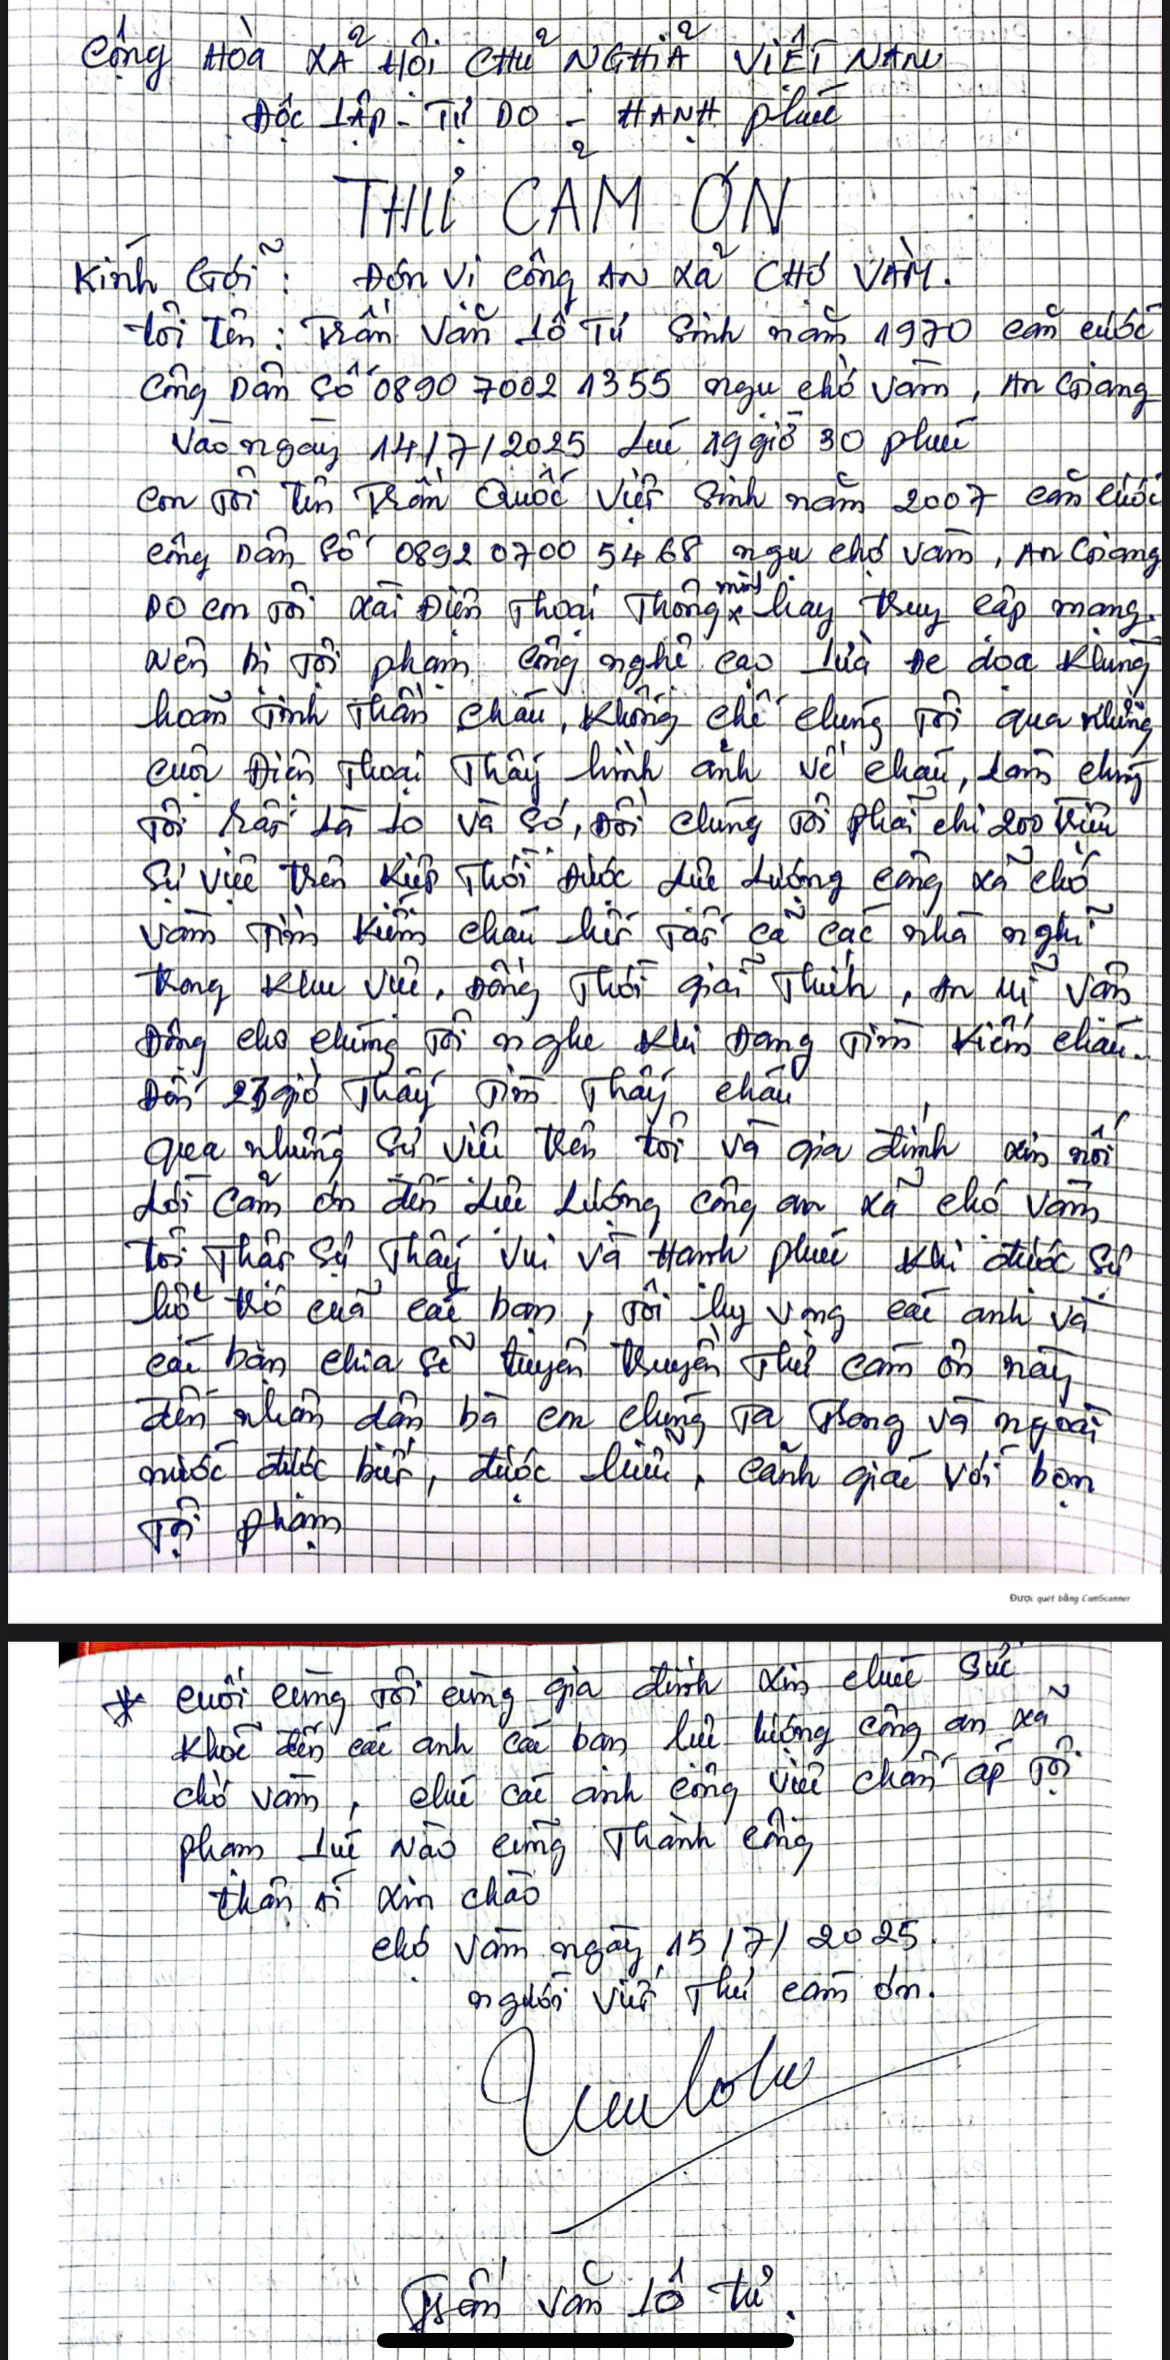 Cộng Hòa Xã Hội Chủ Nghĩa Việt Nam
Độc Lập - Tự Do - Hạnh phúc
THƯ CẢM ƠN
Kính Gởi : Đơn Vị Công An Xã Chợ Vàm.
Tôi Tên : Trần Văn Lô Tứ Sinh năm 1970 căn cước
Công Dân Số 0890 7002 1355 ngụ chợ vàm, An Giang
Vào ngày 14/7/2025 Lúc 19 giờ 30 phút
con Tôi Tên Trần Quốc Việt Sinh năm 2007 căn cước
công Dân Số 0892 0700 5468 ngụ chợ vàm, An Giang
Do con Tôi xài Điện Thoại Thông minh hay truy cập mạng.
Nên bị Tội phạm công nghệ cao lừa đe dọa Khủng
hoản tinh thần cháu, Khống chế chúng Tôi qua những
cuộc Điện Thoại Thấy hình ảnh về cháu, Làm chúng
Tôi rất là lo và sợ, đòi chúng Tôi phải chi 200 Triệu
Sự việc trên Kiệp Thời Được Lực Lượng công xã chợ
vàm Tìm Kiếm cháu hết Tất cả các nhà nghĩ
trong Khu Vực, Đồng Thời giải Thích, An ủi Vận
Động cho chúng Tôi nghe Khi Đang Tìm Kiếm cháu.
Đến 23 giờ Thấy Tìm Thấy cháu
qua những Sự Việc trên tôi và gia đình xin nói
Lời cảm ơn đến Lực Lượng công an xã chợ Vàm
tôi Thật Sự Thấy Vui và Hạnh phúc Khi được Sự
hổt trợ của các bạn, Tôi hy vọng các anh và
các bạn chia sẽ tuyên truyền Thư cảm ơn này
đến nhân dân bà con chúng Ta Trong và ngoài
nước được biết, được hiểu, cảnh giác với bọn
Tội phạm
Được quét bằng CamScanner
* cuối cùng Tôi cùng gia đình xin chúc Sức
Khỏe đến các anh các bạn lực lượng công an xã
chợ vàm, chúc các anh công việc chấn áp Tội
phạm Lúc Nào cũng Thành công
thân ái xin chào
chợ Vàm ngày 15/7/2025.
người Viết Thư cảm ơn.
Trần Văn Lô Tứ.